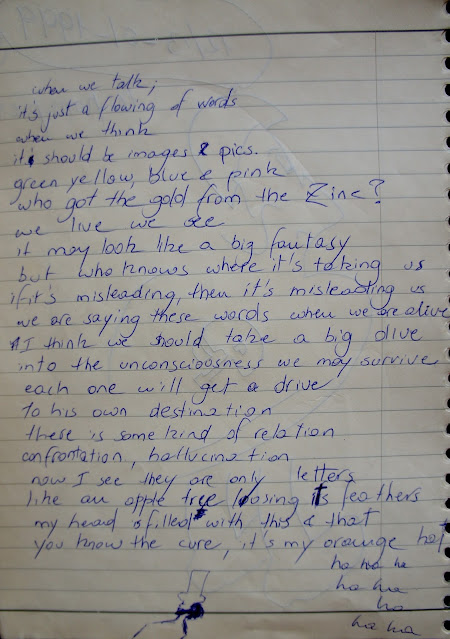 when we talk;
it's just a flowing of words
when we think
it should be images & pics.
green yellow, blue & pink
who got the gold from the Zinc?
we live we see
it may look like a big fantasy
but who knows where it's taking us
if it's misleading, then it's misleading us
we are saying these words when we are alive
I think we should take a big dive
into the unconsciousness we may survive
each one will get a drive
to his own destination
there is some kind of relation
confrontation, hallucination
now I see they are only letters
like an apple tree loosing its feathers
my head is filled with this & that
you know the cure, it's my orange hat
ha ha ha
ha ha
ha
ha ha